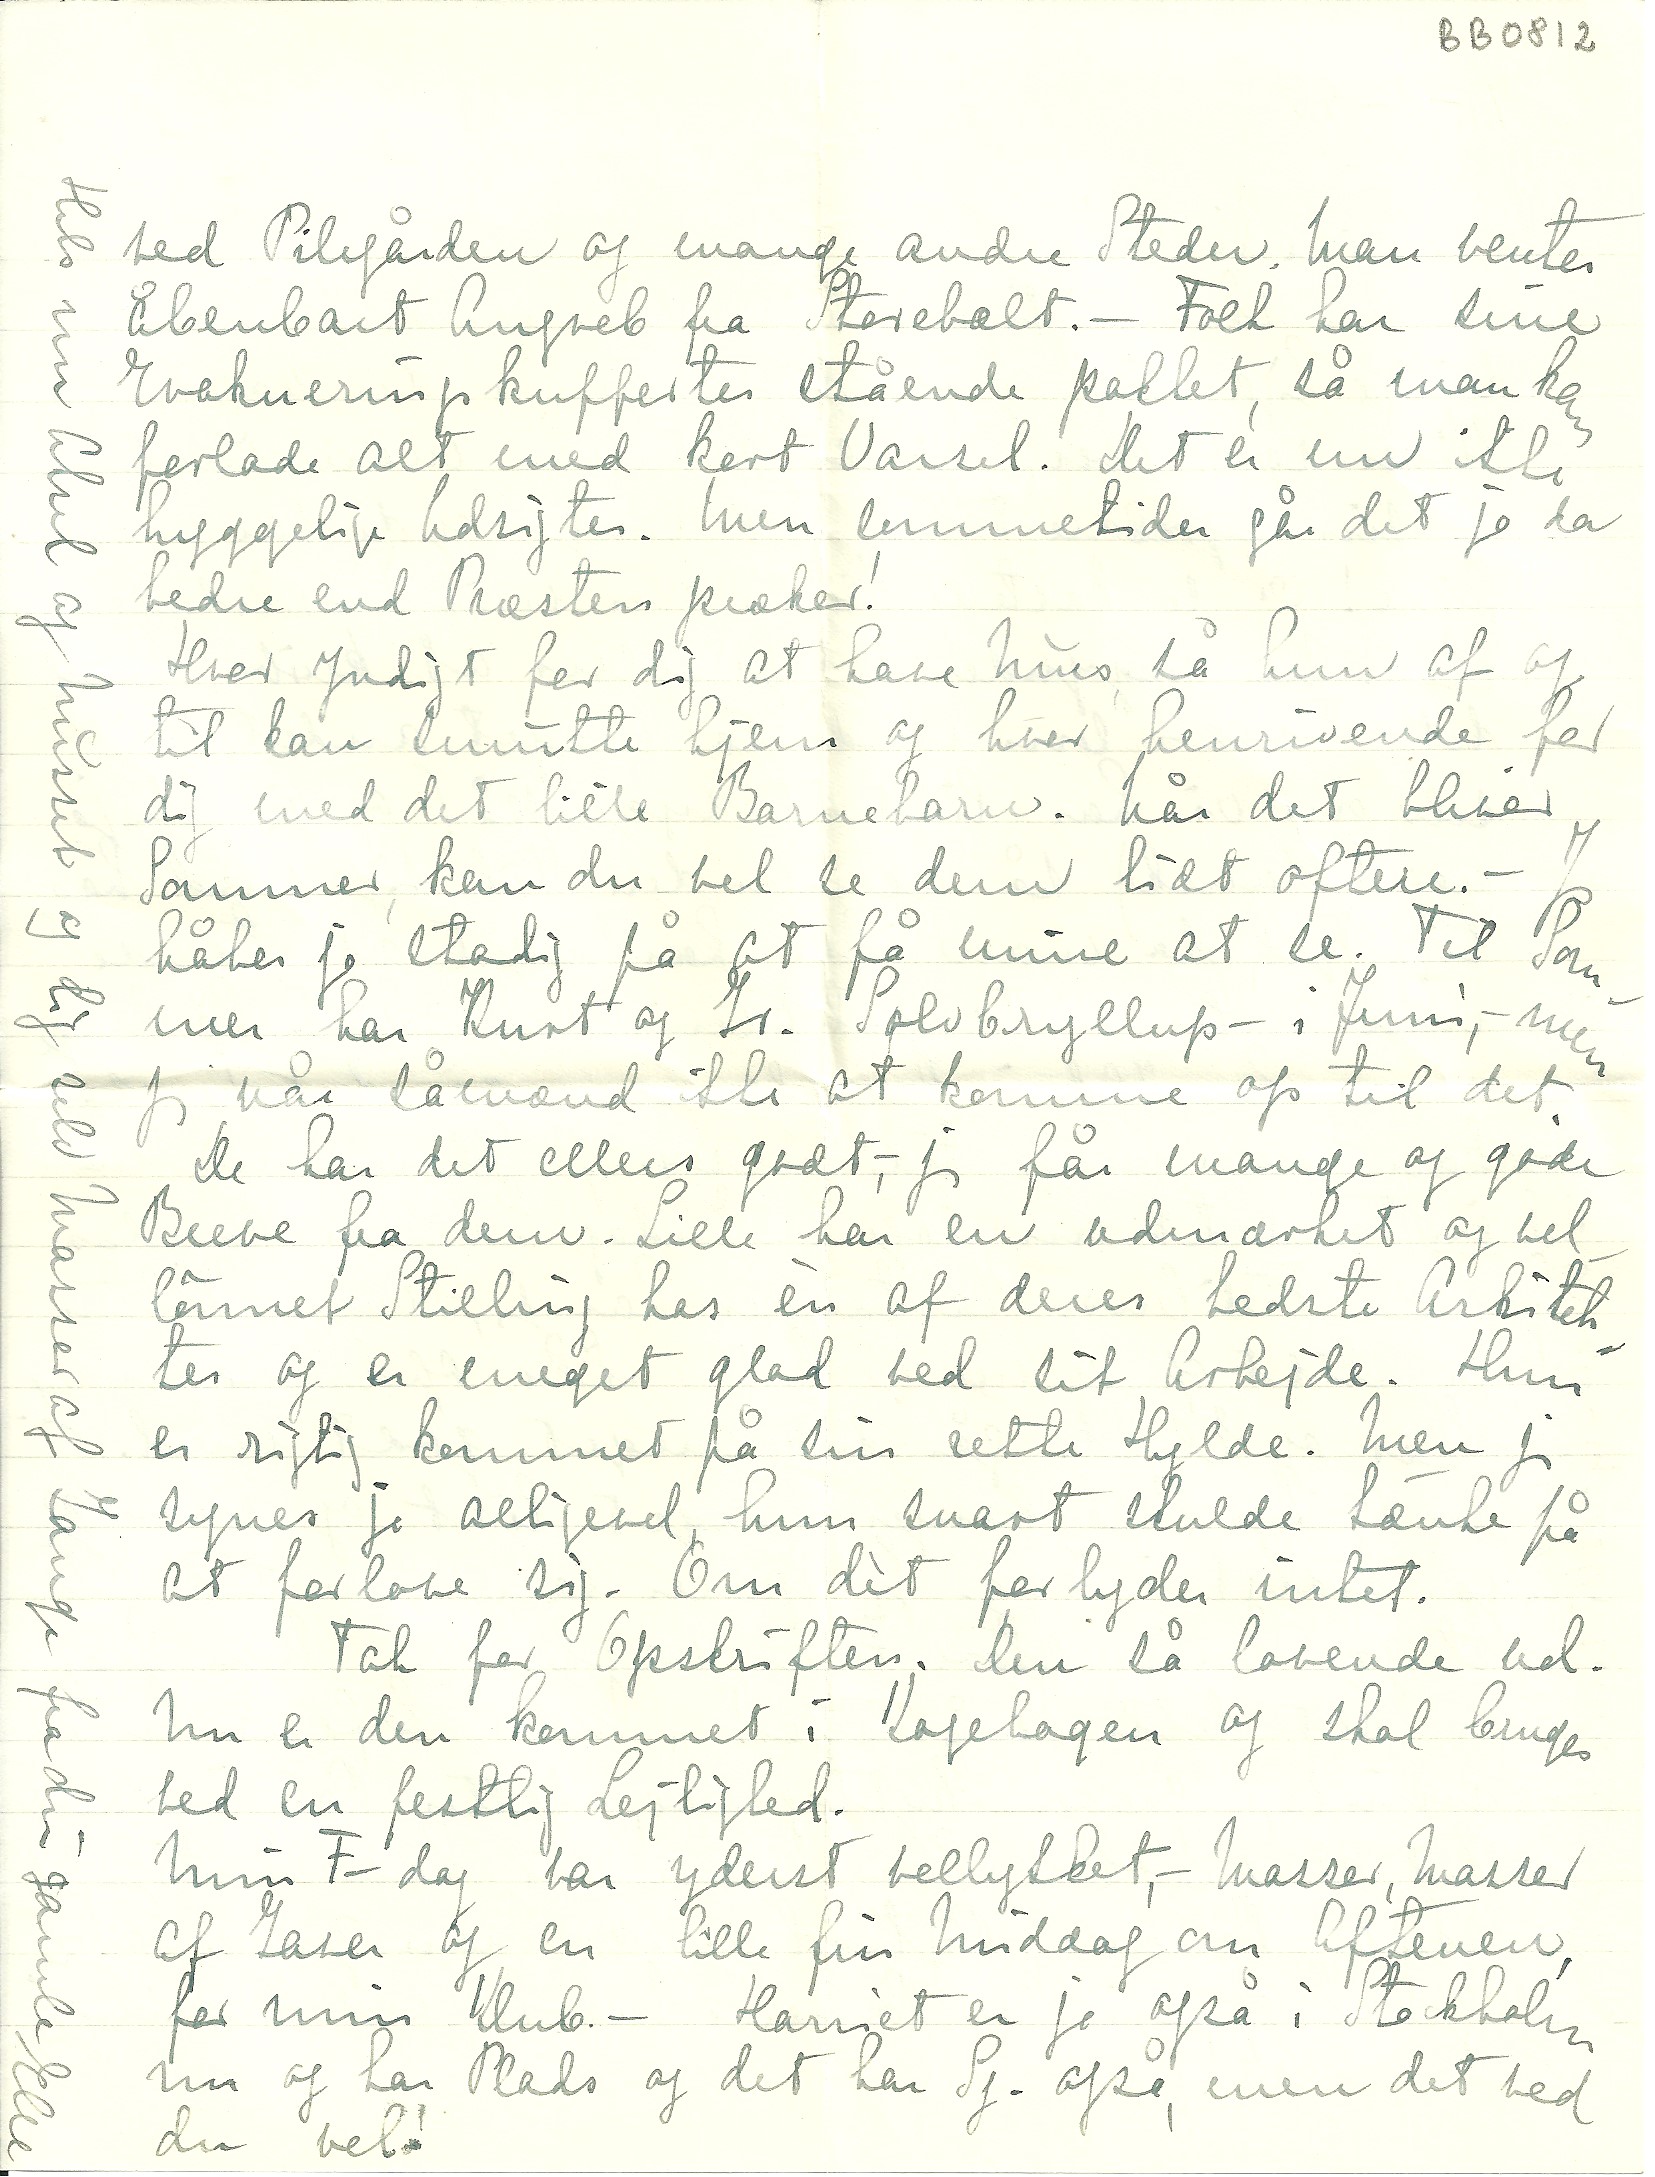 BB0812
ved Pilegården og mange andre Steder. Man venter
åbenbart Angreb fra Storebælt. – Folk har sine
Evakueringskufferter stående pakket, så man kan
forlade alt med kort Varsel. Det er nu ikke
hyggelige Udsigter. Men sommetider går det jo da
bedre end Præsten præker!
Hvor yndigt for dig at have Mus, så hun af og
til kan smutte hjem og hvor henrivende for
dig med det lille Barnebarn. Når det bliver
Sommer, kan du vel se dem lidt oftere. – Jeg
håber jo stadig på at få mine at se. Til Som-
mer har Kurt og Gr. Sølvbryllup – i Juni, – men
jeg når såmænd ikke at komme op til det.
De har det ellers godt, – jeg får mange og gode
Breve fra dem. Lille har en udmærket og vel-
lönnet Stilling hos én af deres bedste Arkitek-
ter og er meget glad ved sit Arbejde. Hun
er rigtig kommet på sin rette Hylde. Men jeg
synes jo alligevel, hun snart skulde tænke på
at forlove sig. Om dèt forlyder intet.
Tak for Opskriften. Den så lovende ud.
Nu er den kommet i Kogebogen og skal bruges
ved en festlig Lejlighed.
Min F-dag var yderst vellykket, – Masser, Masser
af Gaver og en lille fin Middag om Aftenen,
for min Klub. – Harriet er jo også i Stockholm
nu og har Plads og det har Sj. også, men det ved
du vel!
Hils nu Axel og Musset og dig selv Masser af Gange fra din gamle Elle